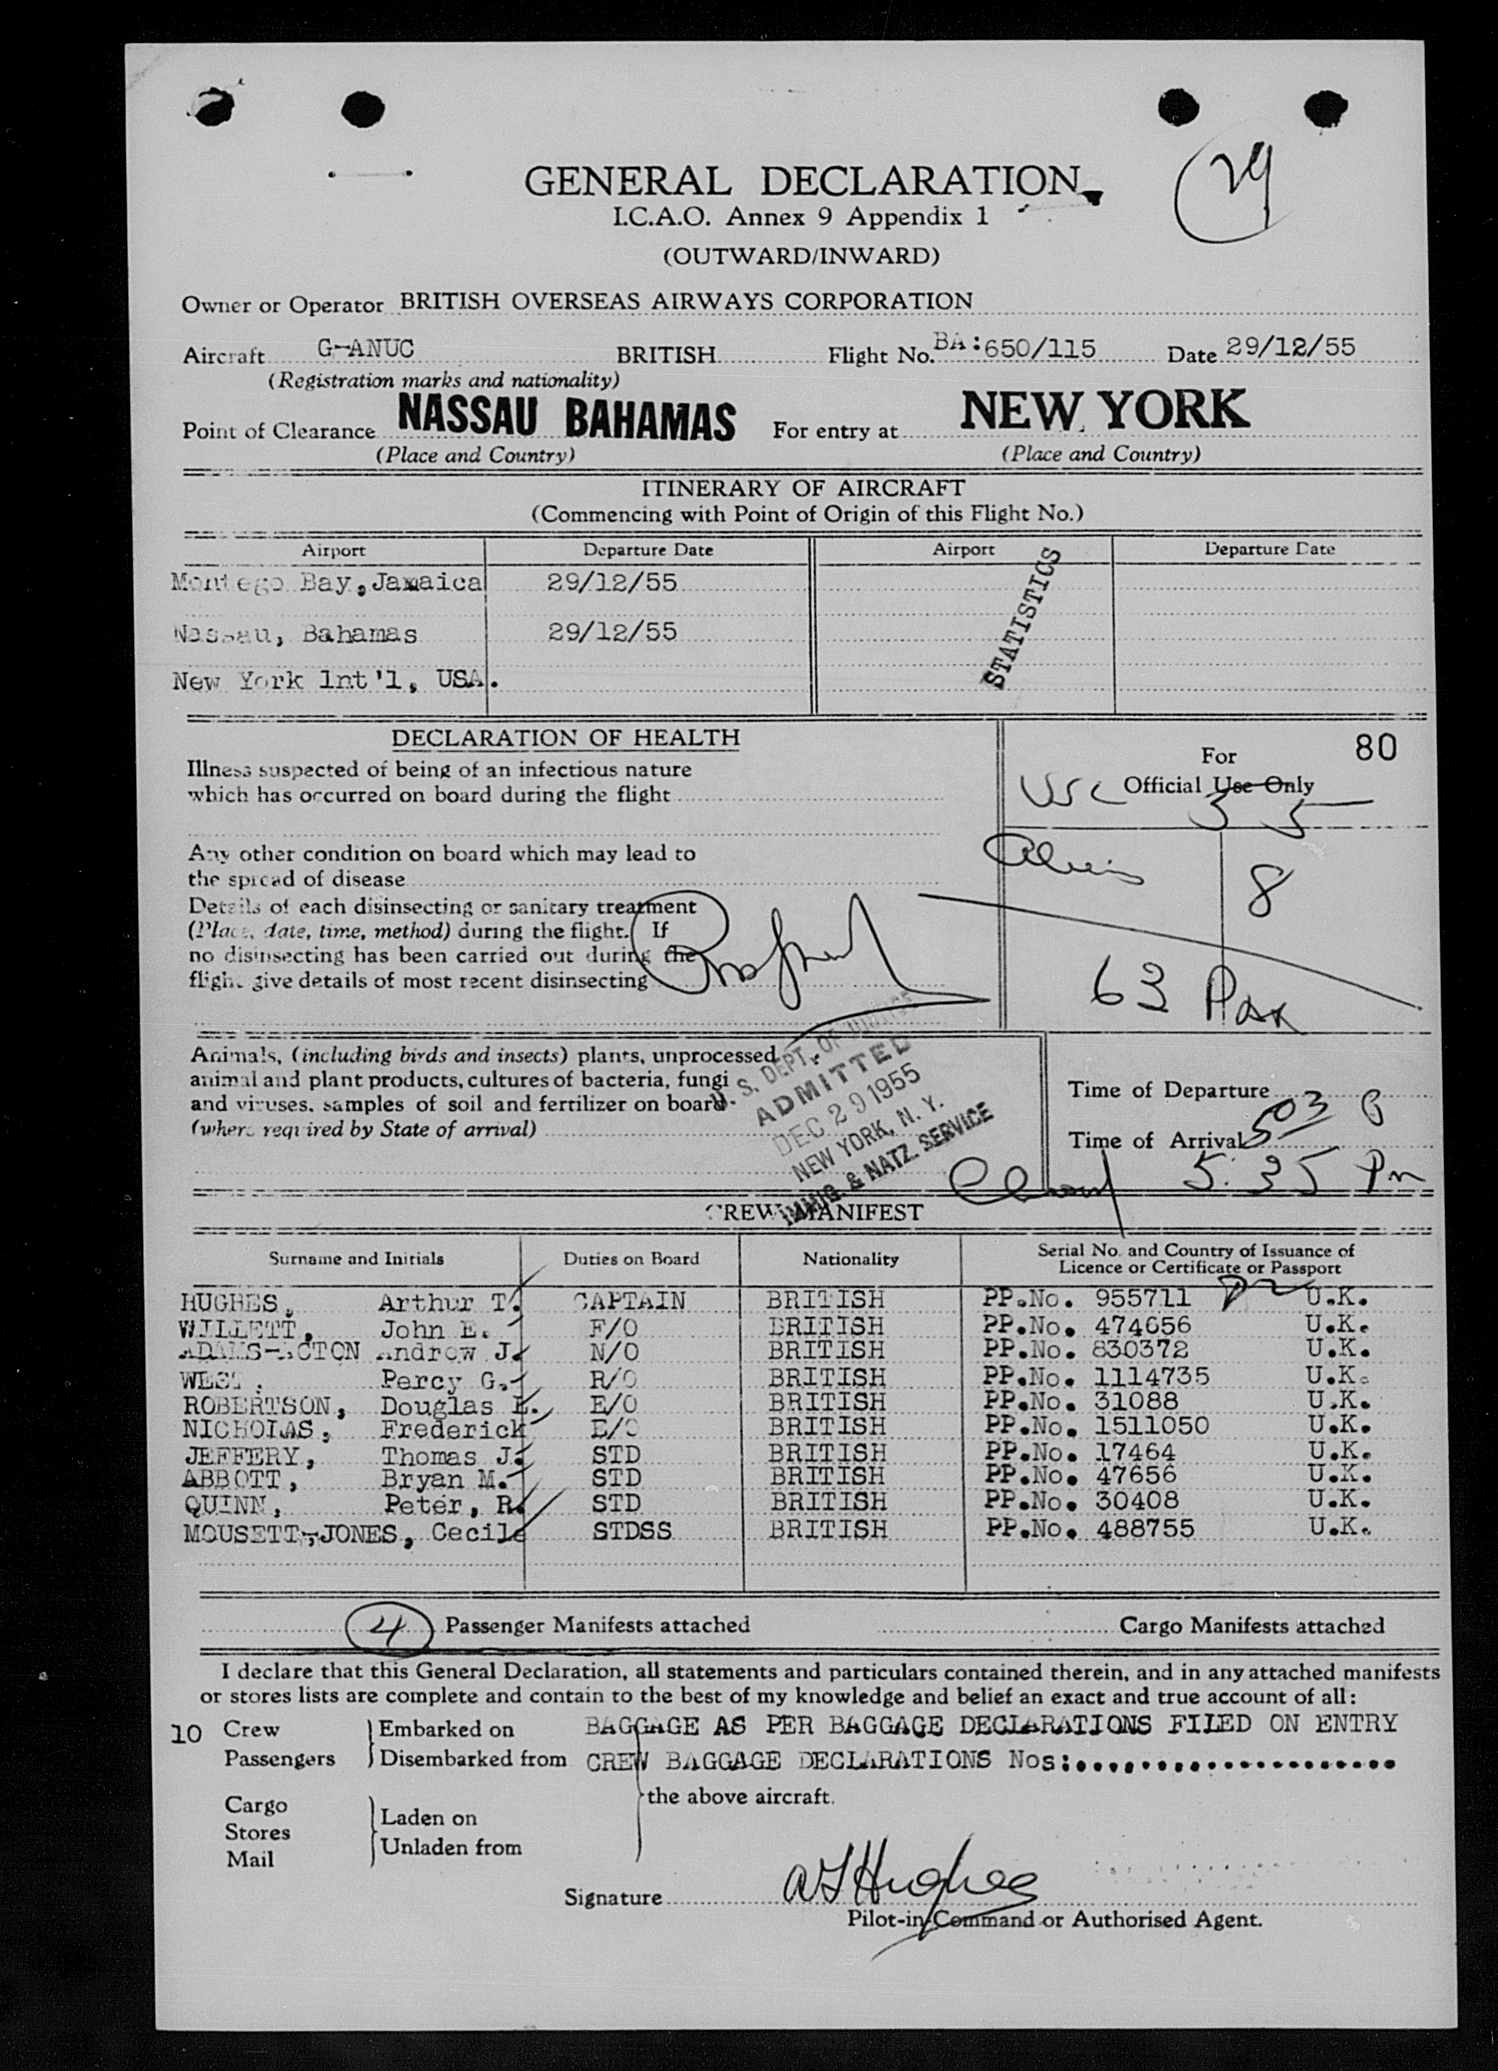 29
GENERAL DECLARATION
I.C.A.O. Annex 9 Appendix 1
(OUTWARD/INWARD)
Owner or Operator BRITISH OVERSEAS AIRWAYS CORPORATION
Aircraft G-ANUC BRITISH Flight No. BA:650/115 Date 29/12/55
(Registration marks and nationality)
Point of Clearance NASSAU BAHAMAS For entry at NEW YORK
(Place and Country) (Place and Country)
ITINERARY OF AIRCRAFT
(Commencing with Point of Origin of this Flight No.)
Airport Departure Date Airport Departure Date
Montego Bay, Jamaica 29/12/55
Nassau, Bahamas 29/12/55
New York lnt'l, USA.
STATISTICS
DECLARATION OF HEALTH
Illness suspected of being of an infectious nature
which has occurred on board during the flight
Any other condition on board which may lead to
the spread of disease
Details of each disinsecting or sanitary treatment
(Place, date, time, method) during the flight. If
no disinsecting has been carried out during the
flight give details of most recent disinsecting
For 80
USC Official Use Only
55
Aliens 8
63 Pax
Animals, (including birds and insects) plants, unprocessed
animal and plant products, cultures of bacteria, fungi
and viruses, samples of soil and fertilizer on board
(where required by State of arrival)
U. S. DEPT. OF JUSTICE
ADMITTED
DEC 29 1955
NEW YORK, N. Y.
IMMIG. & NATZ. SERVICE
Time of Departure
503
Time of Arrival
5:35 Pm
CREW MANIFEST
Surname and Initials Duties on Board Nationality Serial No. and Country of Issuance of
Licence or Certificate or Passport
HUGHES, Arthur T. CAPTAIN BRITISH PP.No. 955711 U.K.
WILLETT, John E. F/O BRITISH PP.No. 474656 U.K.
ADAMS-ACTON Andrew J. N/O BRITISH PP.No. 830372 U.K.
WEST, Percy G. R/O BRITISH PP.No. 1114735 U.K.
ROBERTSON, Douglas L. E/O BRITISH PP.No. 31088 U.K.
NICHOLAS, Frederick E/O BRITISH PP.No. 1511050 U.K.
JEFFERY, Thomas J. STD BRITISH PP.No. 17464 U.K.
ABBOTT, Bryan M. STD BRITISH PP.No. 47656 U.K.
QUINN, Peter, R. STD BRITISH PP.No. 30408 U.K.
MOUSETT-JONES, Cecile STDSS BRITISH PP.No. 488755 U.K.
4 Passenger Manifests attached Cargo Manifests attached
I declare that this General Declaration, all statements and particulars contained therein, and in any attached manifests
or stores lists are complete and contain to the best of my knowledge and belief an exact and true account of all:
10 Crew Embarked on BAGGAGE AS PER BAGGAGE DECLARATIONS FILED ON ENTRY
Passengers Disembarked from CREW BAGGAGE DECLARATIONS Nos:
the above aircraft.
Cargo
Stores
Mail
Laden on
Unladen from
Signature A T Hughes
Pilot-in-Command or Authorised Agent.